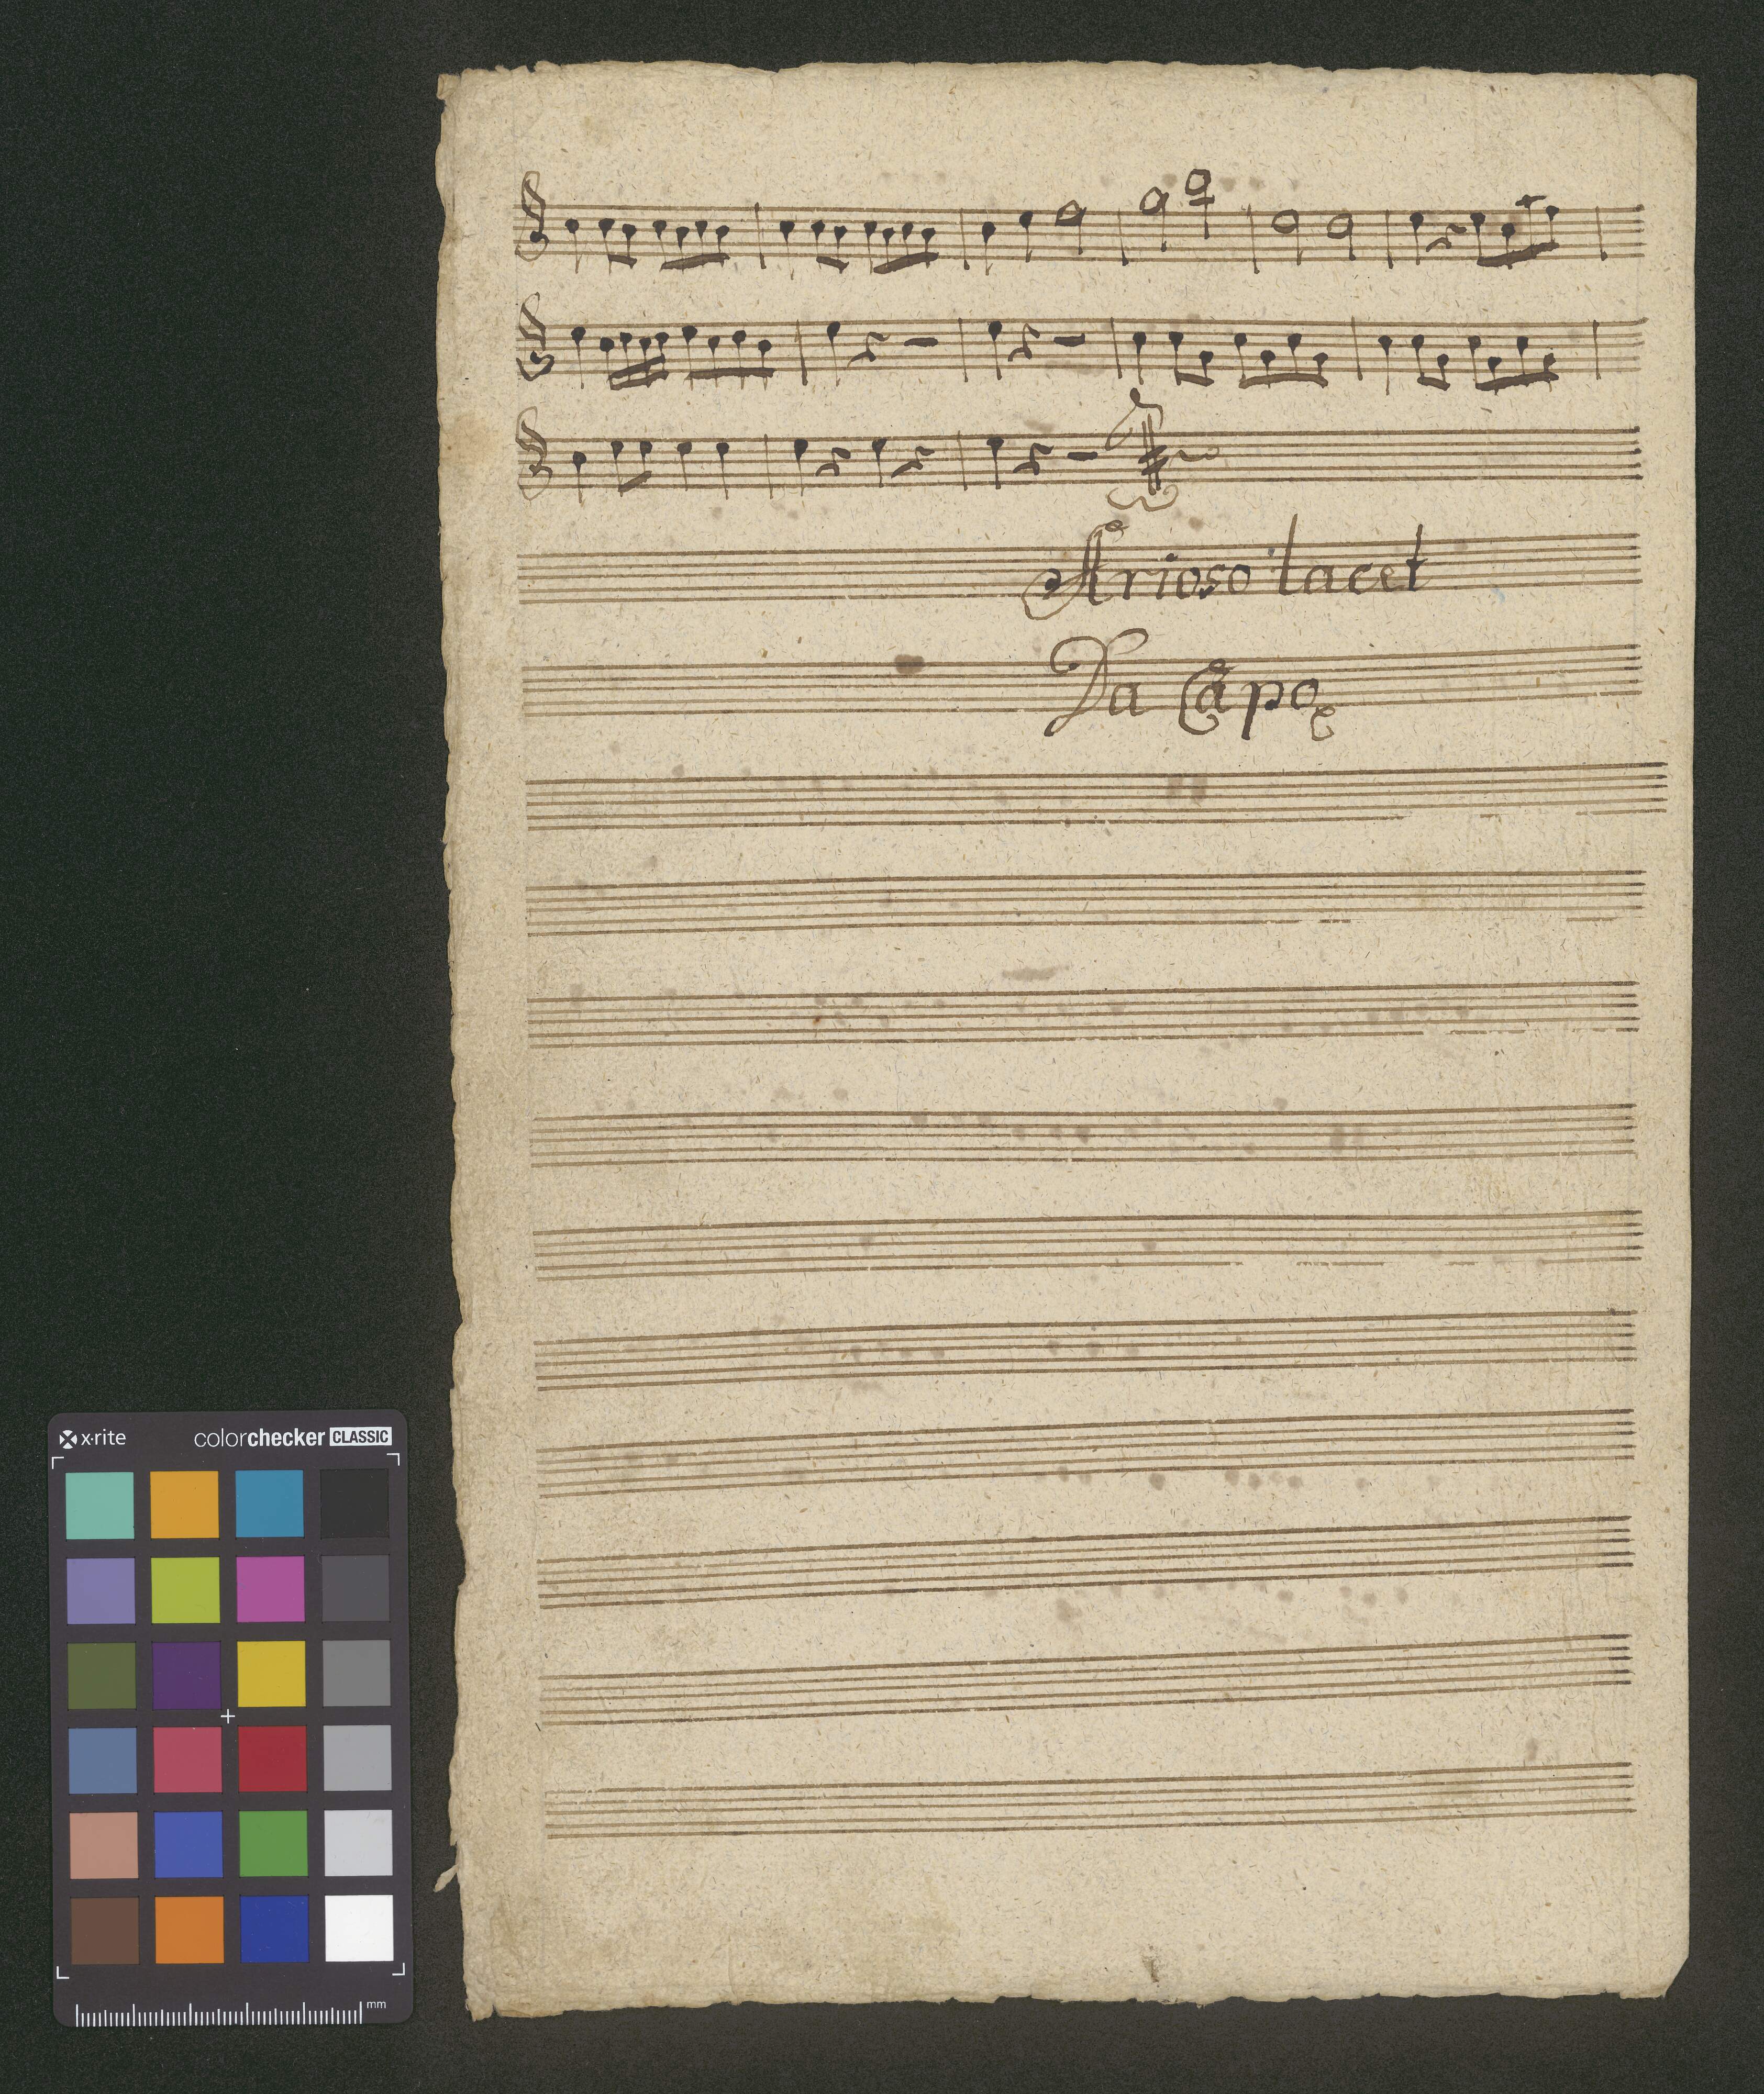 Arioso tacet
Da Capo
x·rite colorchecker CLASSIC
mm